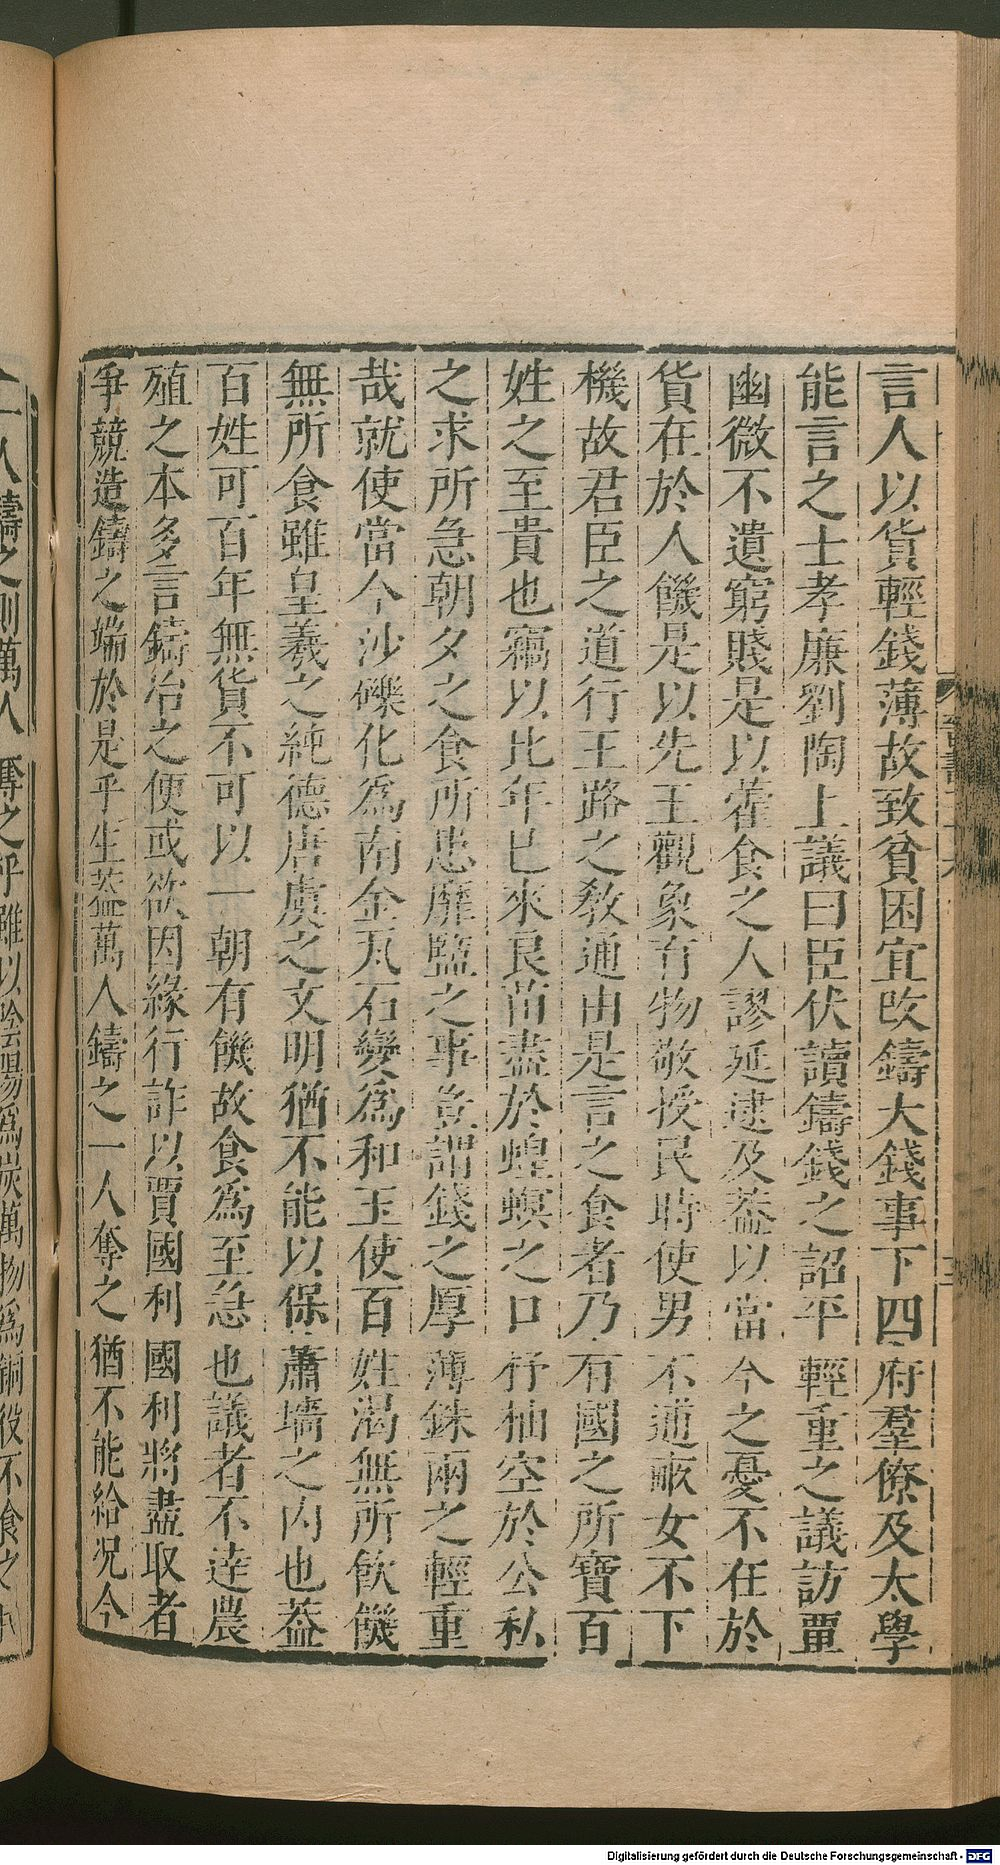 言人以貨輕錢薄故致貧困宜改鑄大錢事下四府羣僚及太學
能言之士孝廉劉陶上議曰臣伏讀鑄錢之詔平輕重之議訪覃
幽微不遺窮賤是以藿食之人謬延逮及葢以當今之憂不在於
貨在於人饑是以先王觀象育物敬授民時使男不逋畞女不下
機故君臣之道行王路之敎通由是言之食者乃有國之所寶百
姓之至貴也竊以比年已來良苗盡於蝗螟之口杼柚空於公私
之求所急朝夕之食所患靡盬之事豈謂錢之厚薄銖兩之輕重
哉就使當今沙礫化爲南金瓦石變爲和玉使百姓渴無所飲饑
無所食雖皇羲之純德唐虞之文明猶不能以保蕭墻之内也葢
百姓可百年無貨不可以一朝有饑故食爲至急也議者不逹農
殖之本多言鑄冶之便或欲因緣行詐以賈國利國利將盡取者
爭競造鑄之端於是乎生葢萬人鑄之一人奪之猶不能給况今
一人鑄之則萬人奪之乎雖以陰陽爲炭萬物爲銅役不食之
Digitalisierung gefördert durch die Deutsche Forschungsgemeinschaft - DFG